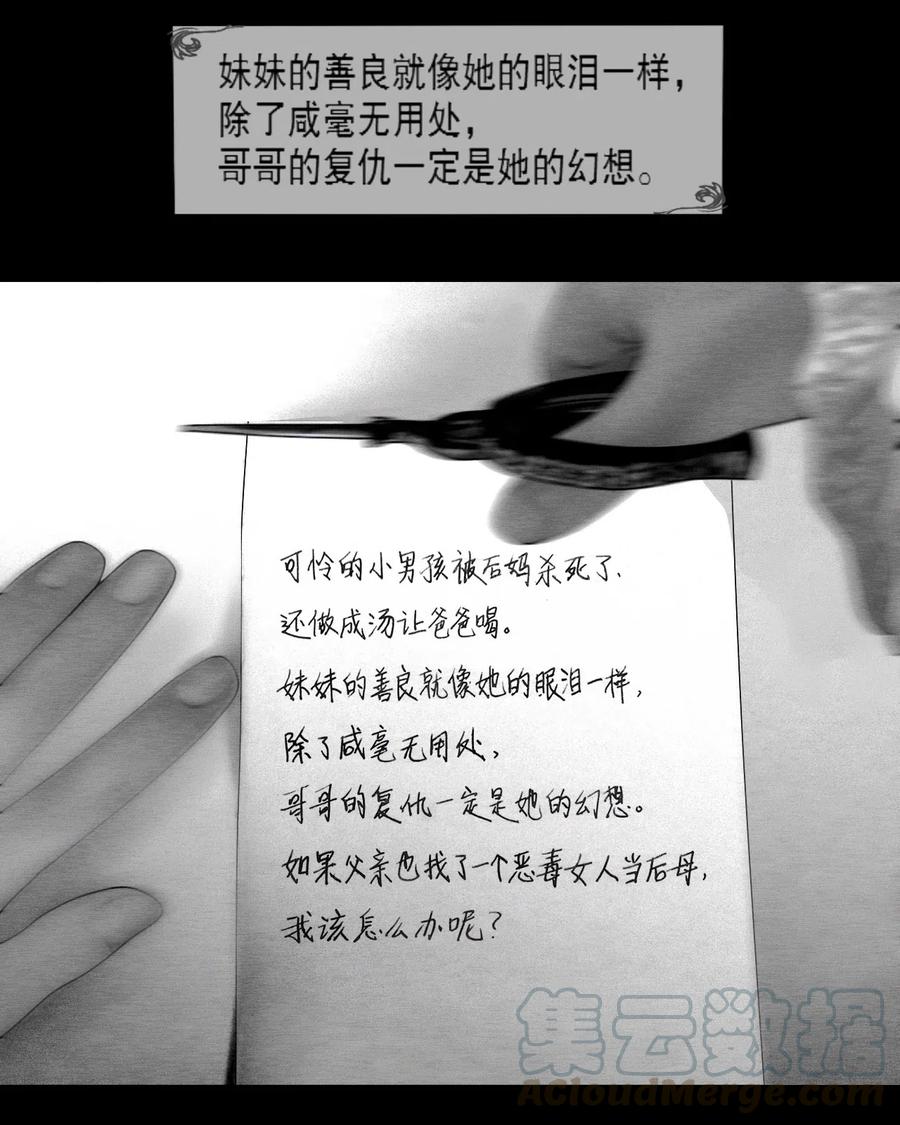 妹妹的善良就像她的眼泪一样，
除了咸毫无用处，
哥哥的复仇一定是她的幻想。
可怜的小男孩被后妈杀死了、
还做成汤让爸爸喝。
妹妹的善良就像她的眼泪一样，
除了咸毫无用处，
哥哥的复仇一定是她的幻想。
如果父亲也找了一个恶毒女人当后母，
我该怎么办呢？
集云数据
ACloudMerge.com